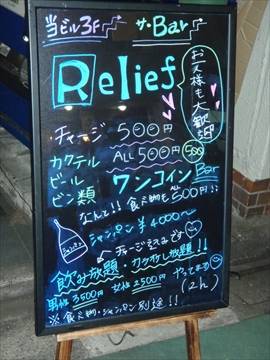 当ビル3F ザ・Bar
Relief
お一人様も大歓迎
・チャージ 500円
カクテル ALL 500円
ビール ワンコイン Bar
ビン類
なんと!! 食べ物も ALL 500円!!
シャンパン ¥4000~
チャージ含みです
飲み放題・カラオケし放題!!
男性 3500円 女性 2500円 やってます
(2h)
※食べ物・シャンパン別途!!